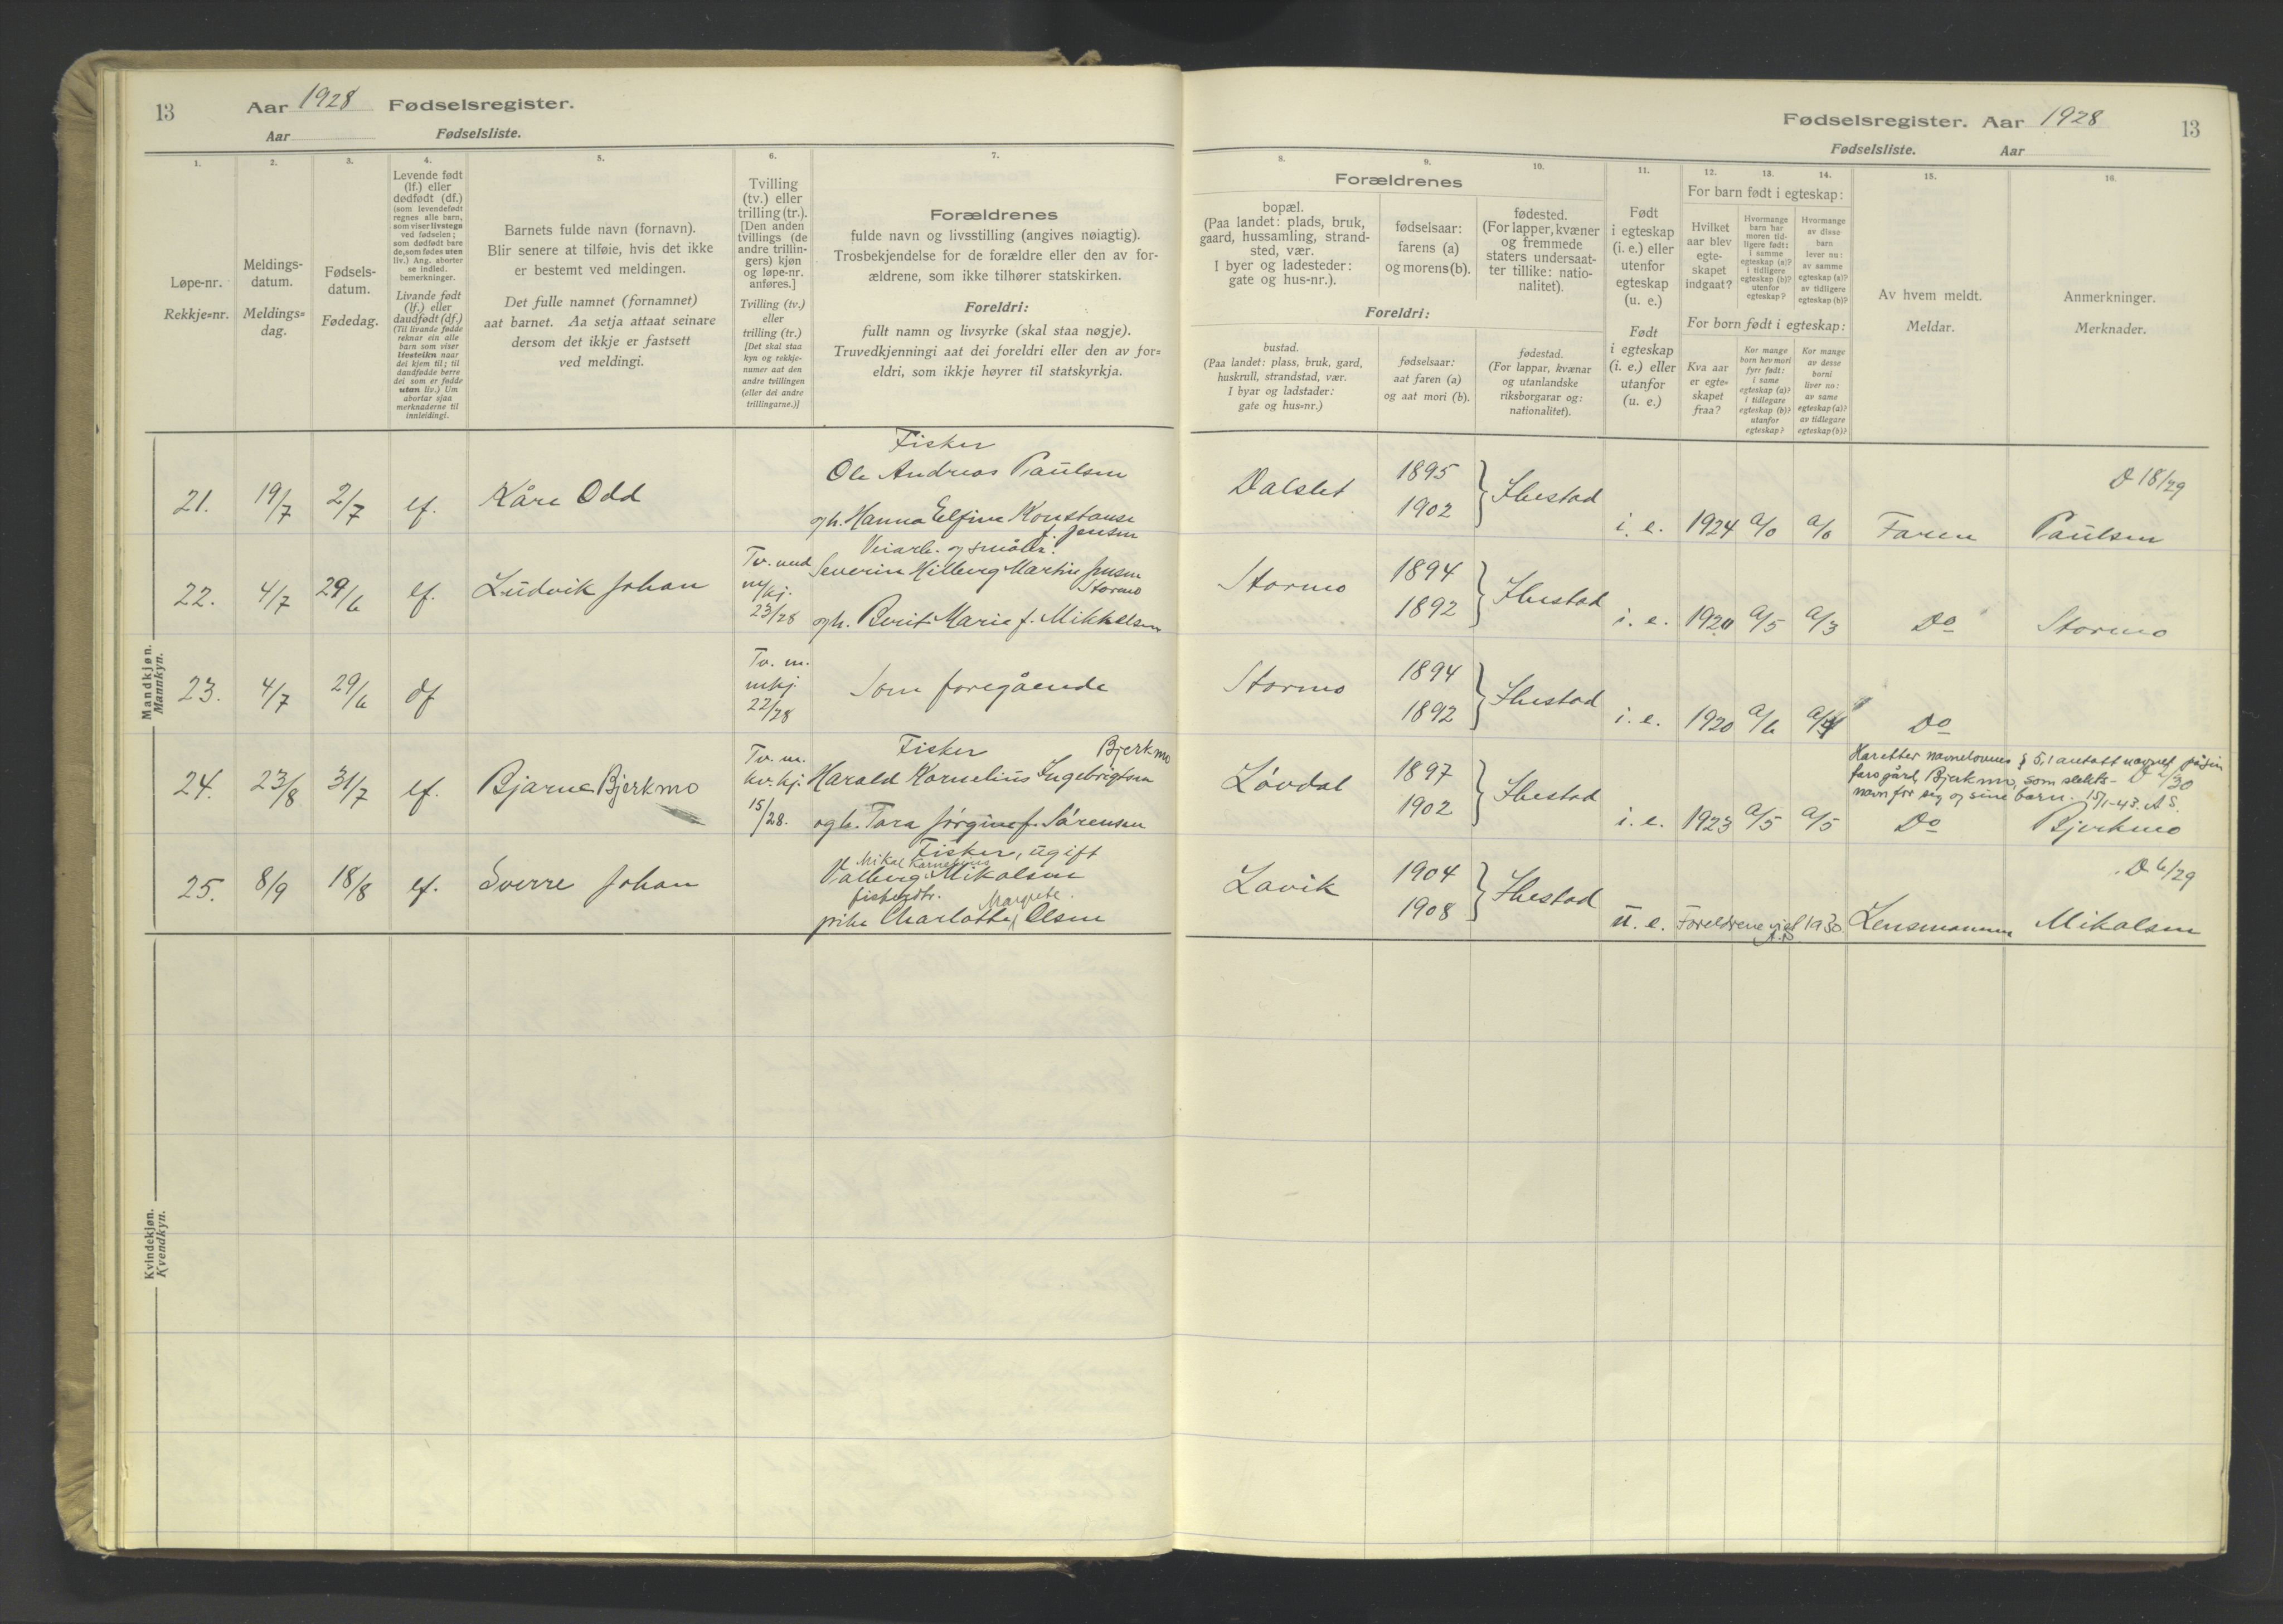 13
Aar 1928 Fødselsregister.
Aar Fødselsliste.
1.
Løpe-nr.
Rekkje=nr.
2.
Meldings-
datum.
Meldings=
dag.
3.
Fødsels-
datum.
Fødedag.
4.
Levende født
(lf.) eller
dødfødt (df.)
(som levendefødt
regnes alle barn,
som viser livstegn
ved fødselen;
som dødfødt bare
de, som fødes uten
liv.) Ang. aborter
se indled.
bemerkninger.
Livande født
(lf.) eller
daudfødt (df.)
(Til livande fødde
reknar ein alle
barn som viser
livsteikn naar
dei kjem til; til
daudfødde berre
dei som er fødde
utan liv.) Um
abortar sjaa
merknaderne til
innleidingi.
5.
Barnets fulde navn (fornavn).
Blir senere at tilføie, hvis det ikke
er bestemt ved meldingen.
Det fulle namnet (fornamnet)
aat barnet. Aa setja attaat seinare
dersom det ikkje er fastsett
ved meldingi.
6.
Tvilling
(tv.) eller
trilling (tr.).
[Den anden
tvillings (de
andre trillin-
gers) kjøn
og løpe-nr.
anføres.]
Tvilling (tv.)
eller
trilling (tr.)
[Det skal staa
kyn og rekkje-
numer aat den
andre tvillingen
(eller dei andre
trillingarne.)]
7.
Forældrenes
fulde navn og livsstilling (angives nøiagtig).
Trosbekjendelse for de forældre eller den av for-
ældrene, som ikke tilhører statskirken.
Foreldri:
fullt namn og livsyrke (skal staa nøgje).
Truvedkjenningi aat dei foreldri eller den av for=
eldri, som ikkje høyrer til statskyrkja.
Mandkjøn.
Mannkyn.
21. 19/7 2/7 lf. Kåre Odd
Fisker
Ole Andreas Paulsen
og h. Hanna Elfine Konstanse
f. Jensen
22. 4/7 29/6 lf. Ludvik Johan
Tv. med
m/kj.
23/28
Veiarb. og småbr.
Severin Hilberg Martin Jensen
Stormo
og h. Berit Marie f. Mikkelsen
23. 4/7 29/6 df
Tv. m.
mkj.
22/28
Som foregående
24. 23/8 31/7 lf. Bjarne Bjerkmo
Tv. m.
kv. kj.
15/28.
Fisker Bjerkmo
Harald Kornelius Ingebrigtsen
og h. Tora Jørgine f. Sørensen
25. 8/9 18/8 lf. Sverre Johan
Fisker, ugift
Mikal Kornelius
Valberg Mikalsen
fiskerdtr. Margrete
pike Charlotte Olsen
Kvindekjøn.
Kvendkyn.
Fødselsregister. Aar 1928
13
Fødselsliste. Aar
8.
Forældrenes
bopæl.
(Paa landet: plads, bruk,
gaard, hussamling, strand-
sted, vær.
I byer og ladesteder:
gate og hus-nr.).
9.
fødselsaar:
farens (a)
og morens (b).
10.
fødested.
(For lapper, kvæner
og fremmede
staters undersaat-
ter tillike: natio-
nalitet).
Foreldri:
bustad.
(Paa landet: plass, bruk, gard,
huskrull, strandstad, vær.
I byar og ladstader:
gate og hus=nr.)
fødselsaar:
aat faren (a)
og aat mori (b).
fødestad.
(For lappar, kvænar
og utanlandske
riksborgarar og:
nationalitet).
11.
Født
i egteskap
(i. e.) eller
utenfor
egteskap
(u. e.)
Født
i egteskap
(i. e.) eller
utanfor
(u. e.)
12. 13. 14.
For barn født i egteskap:
Hvilket
aar blev
egte-
skapet
indgaat?
Hvormange
barn har
moren tid-
ligere født:
i samme
egteskap (a)?
i tidligere
egteskap (b)?
utenfor
egteskap?
Hvormange
av disse
barn
lever nu:
av samme
egteskap (a)?
av tidligere
egteskap (b)?
For born født i egteskap:
Kva aar
er egte=
skapet
fraa?
Kor mange
born hev mori
fyrr født:
i same
egteskap (a)?
i tidlegare
egteskap (b)?
utanfor
egteskap?
Kor mange
av desse
borni
liver no:
av same
egteskap (a)?
av tidlegare
egteskap (b)?
15.
Av hvem meldt.
Meldar.
16.
Anmerkninger.
Merknader.
Dalslet 1895 1902 } Ibestad i. e. 1924 a/0 a/0 Faren D 18/29
Paulsen
Stormo 1894 1892 } Ibestad i. e. 1920 a/5 a/3 Do Stormo
Stormo 1894 1892 } Ibestad i. e. 1920 a/6 a/4 Do
Har etter navnelovens § 5,1 antatt navnet på sin
fars gård, Bjerkmo, som slekts-
navn for seg og sine barn. 15/1-43. A S.
Løvdal 1897 1902 } Ibestad i. e. 1923 a/5 a/5 Do Bjerkmo
Lavik 1904 1908 } Ibestad u. e. Foreldrene gift 1930 Lensmannen D 6/29
Mikalsen